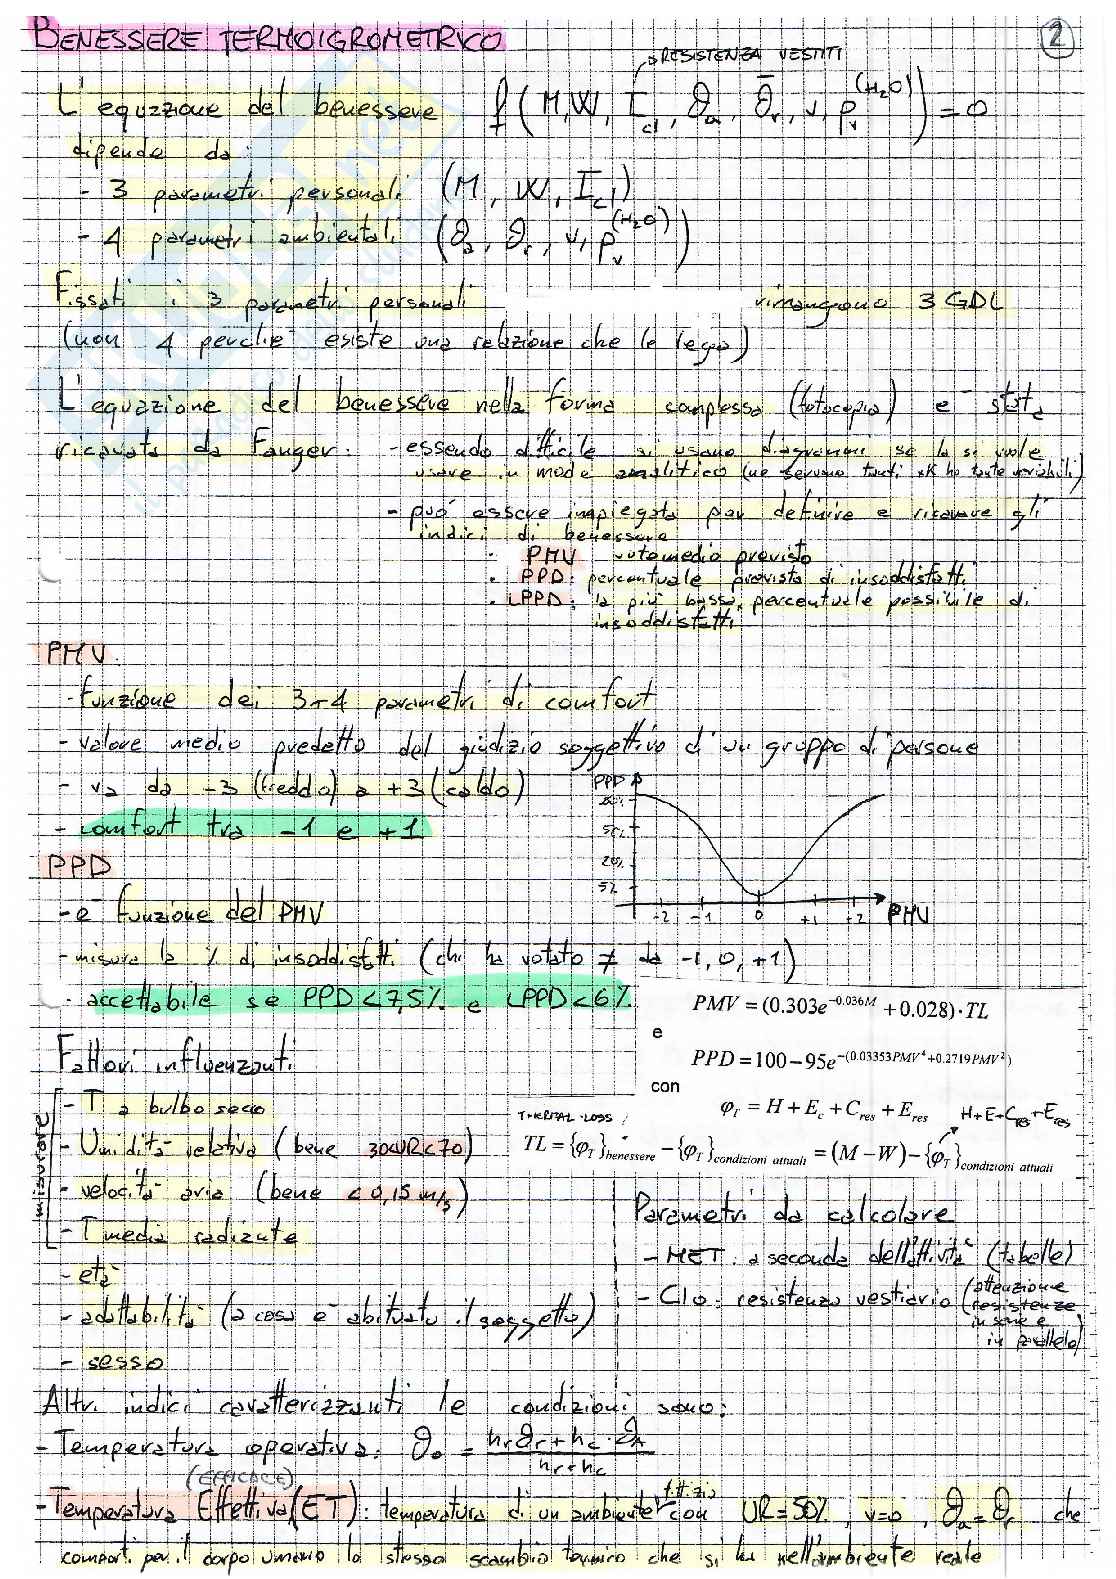 BENESSERE TERMOIGROMETRICO
2
RESISTENZA VESTITI
L'equazione del benessere f(M, W, Icl, ϑa, ϑ̄r, v, pv(H2O)) = 0
dipende da:
- 3 parametri personali (M, W, Icl)
- 4 parametri ambientali (ϑa, ϑr, v, pv(H2O))
Fissati i 3 parametri personali rimangono 3 GDL
(non 4 perché esiste una relazione che le lega)
L'equazione del benessere nella forma complessa (fotocopia) è stata
ricavata da Fanger: - essendo difficile si usano diagrammi se la si vuole
usare in modo analitico (ne servono tanti xk ho tante variabili)
- può essere impiegata per definire e ricavare gli
indici di benessere
· PMV voto medio previsto
· PPD: percentuale prevista di insoddisfatti
· LPPD: la più bassa percentuale possibile di
insoddisfatti
PMV
- funzione dei 3+4 parametri di comfort
- valore medio predetto del giudizio soggettivo di un gruppo di persone
- va da -3 (freddo) a +3 (caldo)
- comfort tra -1 e +1
PPD
80%
50%
20%
5%
-2 -1 0 +1 +2 PMV
PPD
- è funzione del PMV
- misura la % di insoddisfatti (chi ha votato ≠ da -1, 0, +1)
- accettabile se PPD < 7,5% e LPPD < 6%
PMV = (0.303e^-0.036M + 0.028)·TL
e
PPD = 100-95e^-(0.03353PMV^4+0.2719PMV^2)
con
φT = H + Ec + Cres + Eres
H+E+Cres+Eres
THERMAL LOSS
TL = {φT}benessere - {φT}condizioni attuali = (M - W) - {φT}condizioni attuali
Fattori influenzanti
misurare
- T a bulbo secco
- Umidità relativa (bene 30<UR<70)
- velocità aria (bene < 0,15 m/s)
- T media radiante
- età
- adattabilità (a cosa è abituato il soggetto)
- sesso
Parametri da calcolare
- MET: a seconda dell'attività (tabelle)
- Clo: resistenza vestiario (attenzione
resistenze
in serie e
in parallelo)
Altri indici caratterizzanti le condizioni sono:
- Temperatura operativa: ϑo = (hr ϑr + hc · ϑA) / (hr + hc)
(EFFICACE)
fittizio
- Temperatura Effettiva (ET): temperatura di un ambiente con UR=50%, v=0, ϑa=ϑr che
comporti per il corpo umano lo stesso scambio termico che si ha nell'ambiente reale